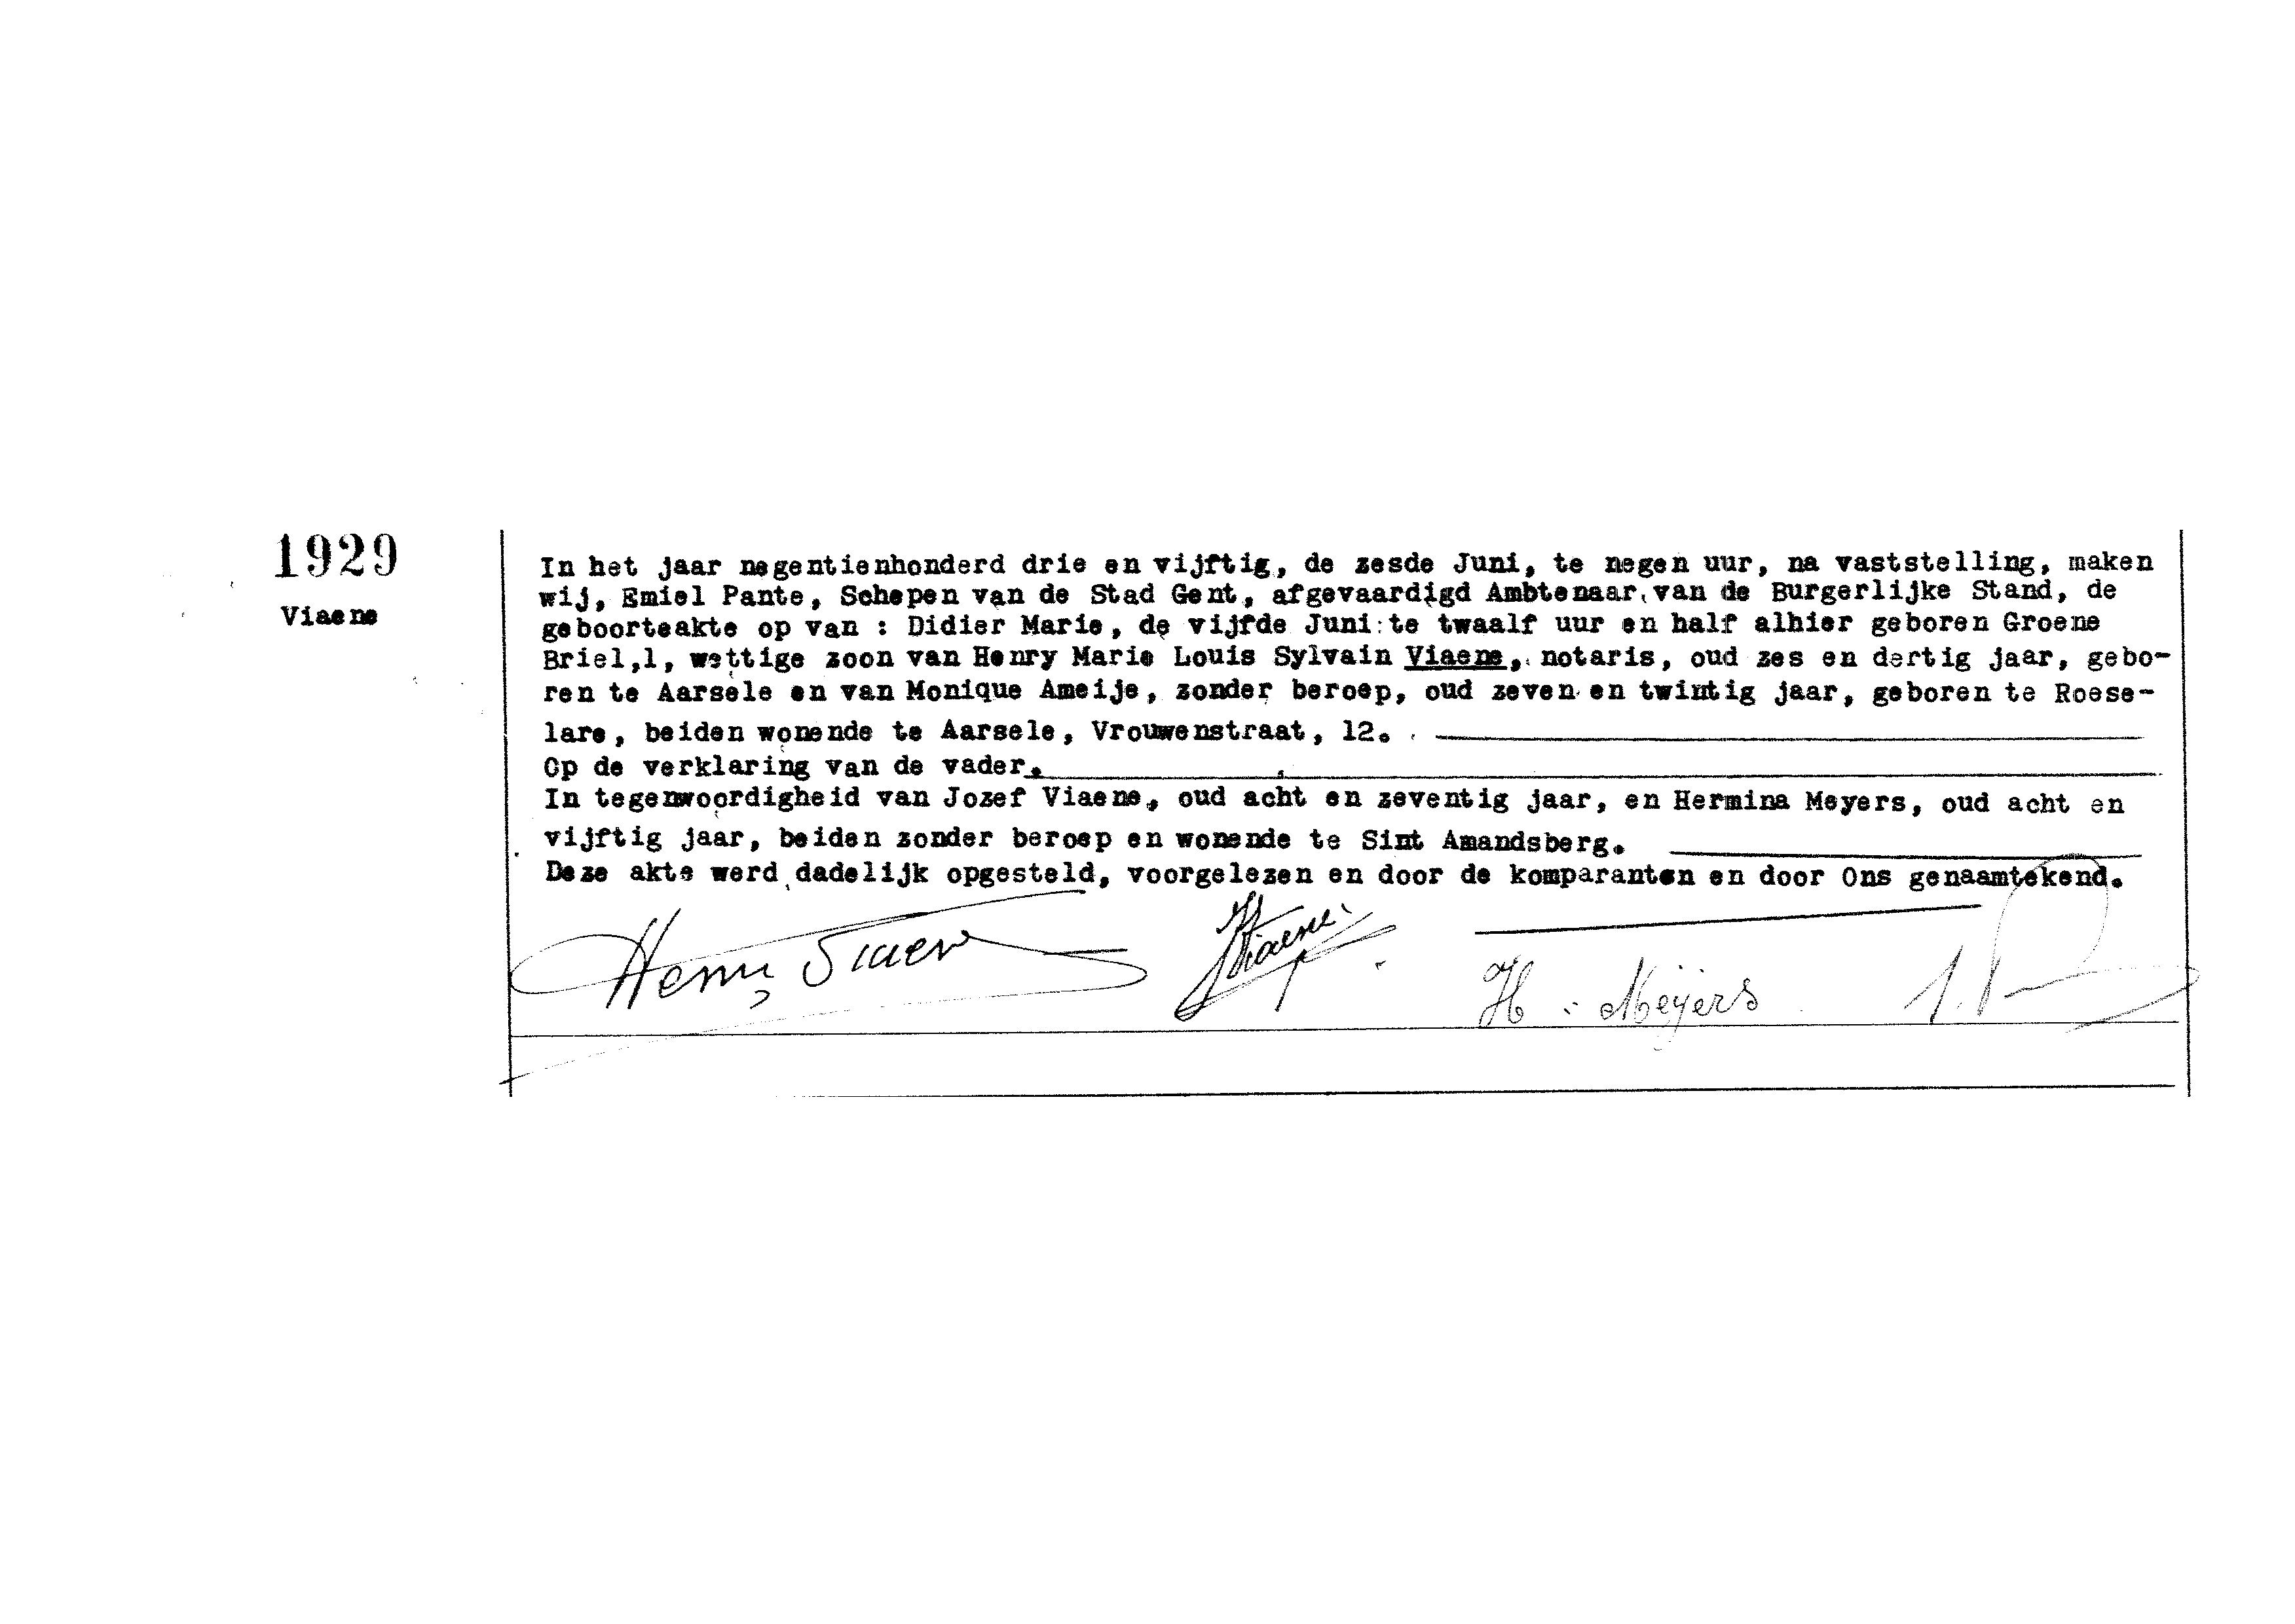 1929
Viaene
In het jaar negentienhonderd drie en vijftig, de zesde Juni, te negen uur, na vaststelling, maken
wij, Emiel Pante, Schepen van de Stad Gent, afgevaardigd Ambtenaar van de Burgerlijke Stand, de
geboorteakte op van : Didier Marie, de vijfde Juni te twaalf uur en half alhier geboren Groene
Briel,1, wettige zoon van Henry Marie Louis Sylvain Viaene, notaris, oud zes en dertig jaar, gebo-
ren te Aarsele en van Monique Ameije, zonder beroep, oud zeven en twintig jaar, geboren te Roese-
lare, beiden wonende te Aarsele, Vrouwenstraat, 12.
Op de verklaring van de vader.
In tegenwoordigheid van Jozef Viaene, oud acht en zeventig jaar, en Hermina Meyers, oud acht en
vijftig jaar, beiden zonder beroep en wonende te Sint Amandsberg.
Deze akte werd dadelijk opgesteld, voorgelezen en door de komparanten en door Ons genaamtekend.
Henry Viaene Viaene H. Meyers